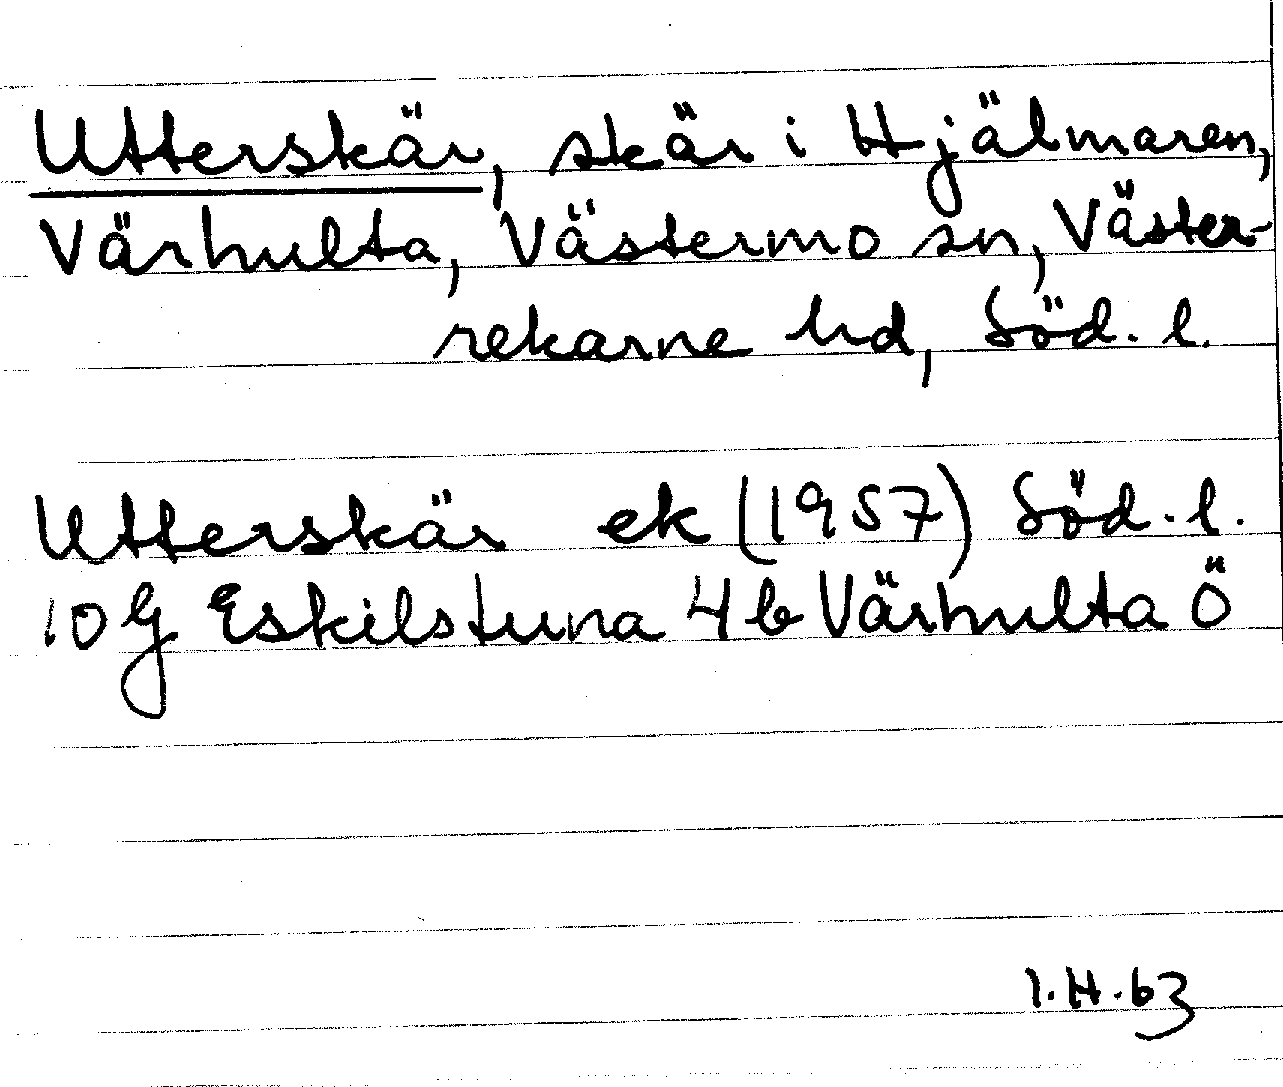 Utterskär, skär i Hjälmaren,
Värhulta, Västermo sn, Väster-
rekarne hd, Söd. l.
Utterskär ek (1957) Söd. l.
10G Eskilstuna 4b Värhulta Ö
I.H.63